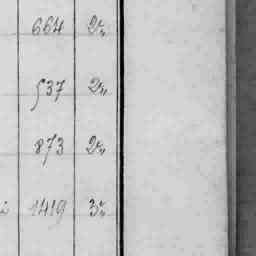 664 2
537 2
873 2
1419 3